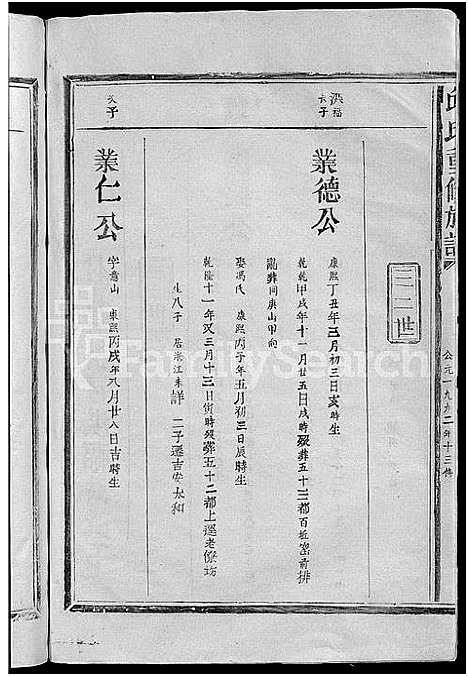 邱氏重修族譜
三二世
公元一九九二年十三修
洪福
長子
業德公
康熙丁丑年三月初三日亥時生
乾隆甲戌年十一月廿五日戌時歿葬五十三都百坵窑前排
亂葬同庚山甲向
娶馮氏 康熙丙子年五月初三日辰時生
乾隆十一年又三月十三日衝時歿葬五十二都上遥老傢坊
生八子 居浙江未詳 二子遷吉安太和
次子
業仁公
字意山 康熙丙戌年八月廿八日吉時生
FamilySearch